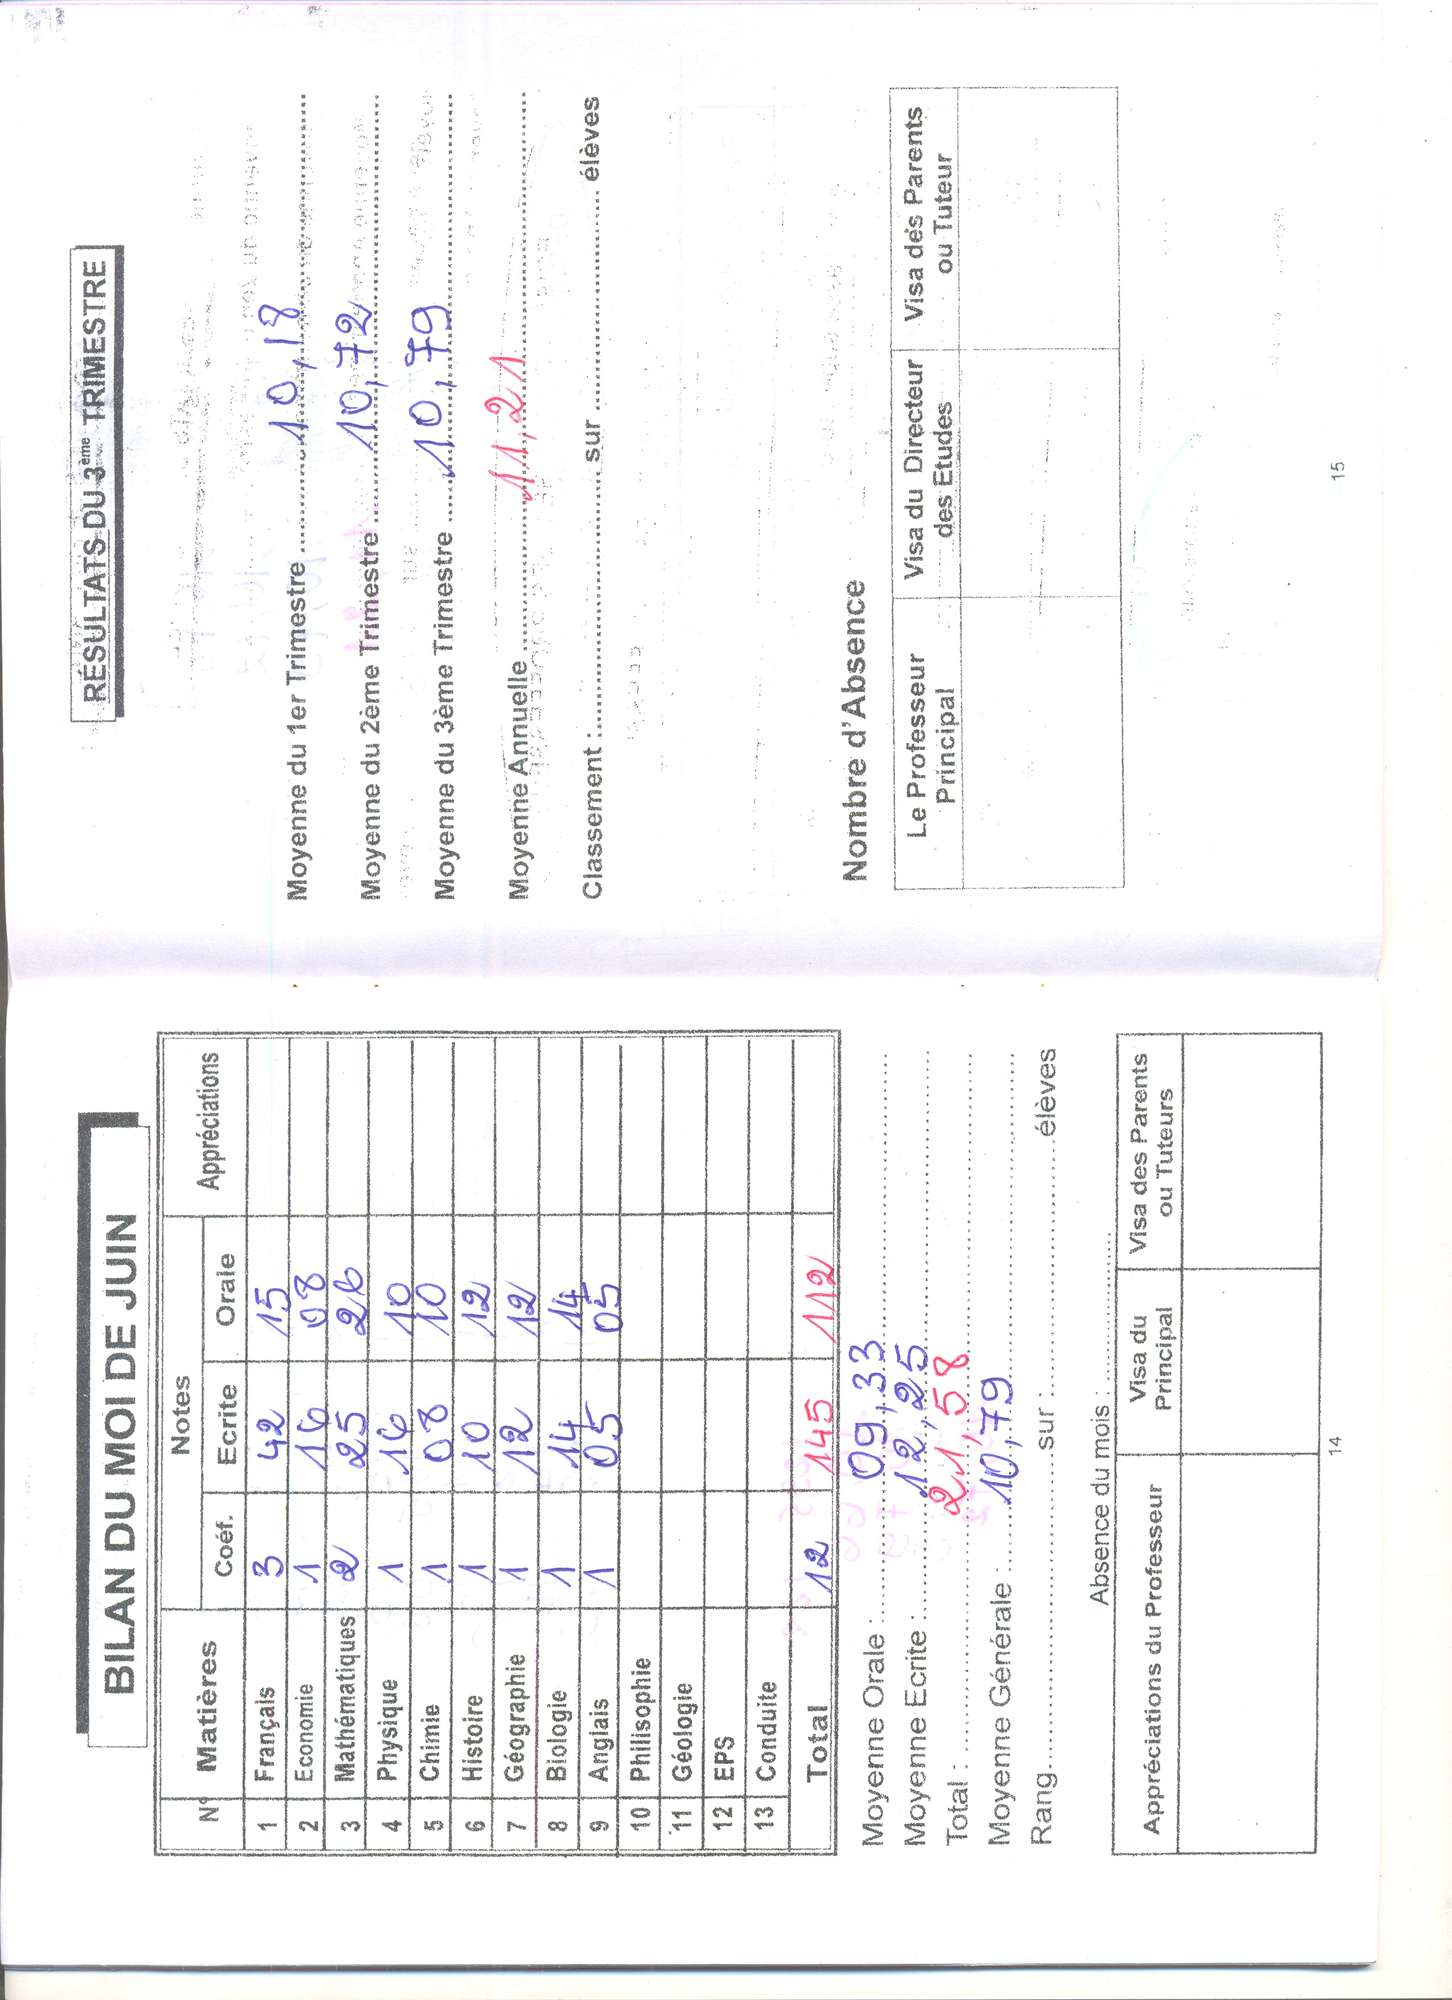 BILAN DU MOI DE JUIN
N° Matières Notes Appréciations
Coéf. Ecrite Orale
1 Français 3 42 15
2 Economie 1 16 08
3 Mathématiques 2 25 26
4 Physique 1 16 10
5 Chimie 1 08 10
6 Histoire 1 10 12
7 Géographie 1 12 12
8 Biologie 1 14 14
9 Anglais 1 05 05
10 Philisophie
11 Géologie
12 EPS
13 Conduite
Total 12 145 112
Moyenne Orale : 09,33
Moyenne Ecrite : 12,25
Total : 21,58
Moyenne Générale : 10,79
Rang sur : élèves
Absence du mois :
Appréciations du Professeur Visa du Principal Visa des Parents ou Tuteurs
14
RÉSULTATS DU 3ème TRIMESTRE
Moyenne du 1er Trimestre 10,18
Moyenne du 2ème Trimestre 10,72
Moyenne du 3ème Trimestre 10,79
Moyenne Annuelle 11,21
Classement : sur élèves
Nombre d'Absence
Le Professeur Principal Visa du Directeur des Etudes Visa des Parents ou Tuteur
15